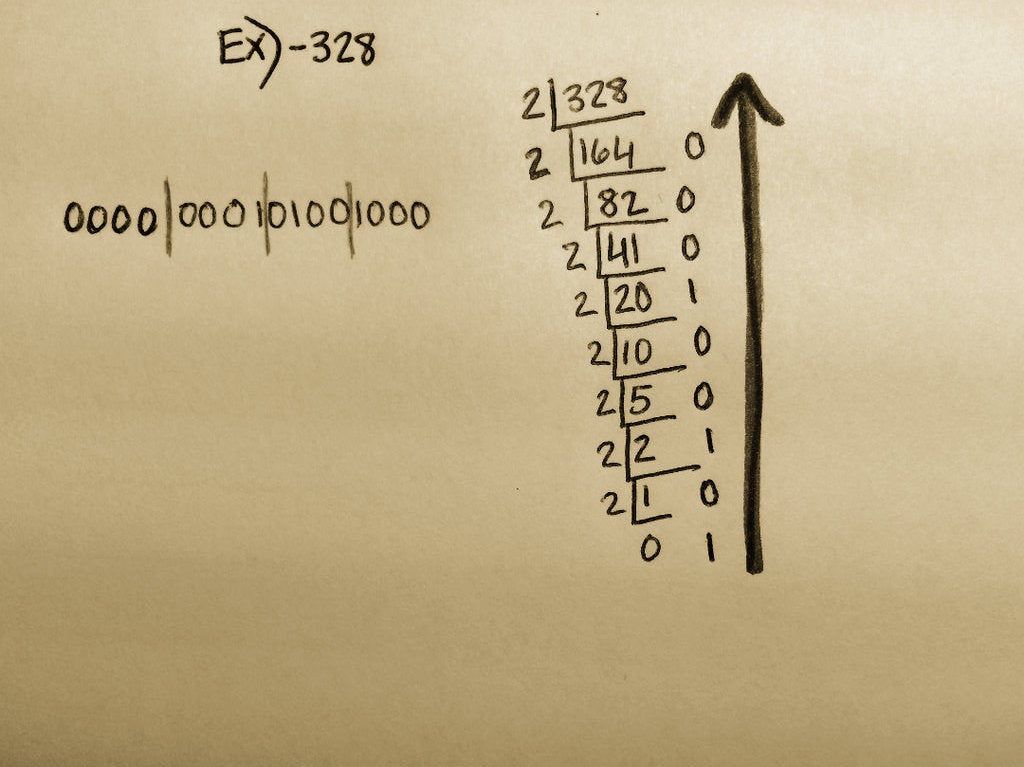 Ex) -328
0000|0001|0100|1000
2 328
2 164 0
2 82 0
2 41 0
2 20 1
2 10 0
2 5 0
2 2 1
2 1 0
0 1